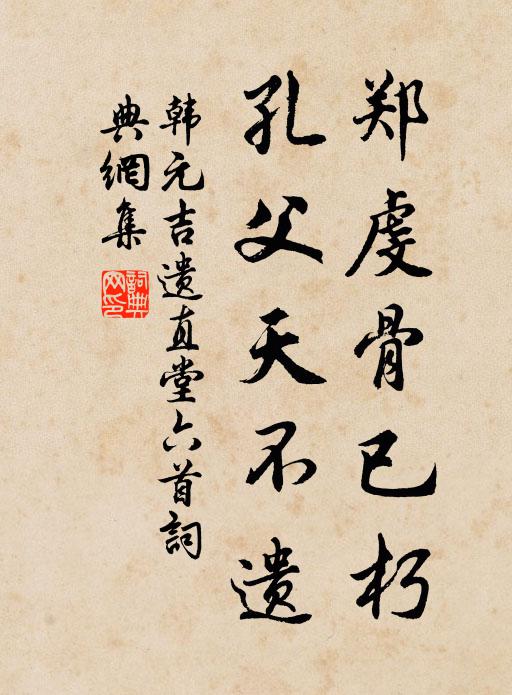 郑虔骨已朽
孔父天不遗
韩元吉遗直堂六首詞
典網集
詞典网印